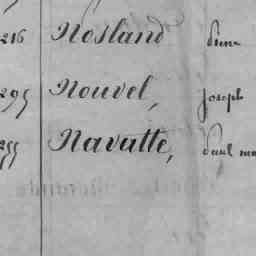 216 Nosland Pierre
295 Nouvel, Joseph
255 Navatte, Paul